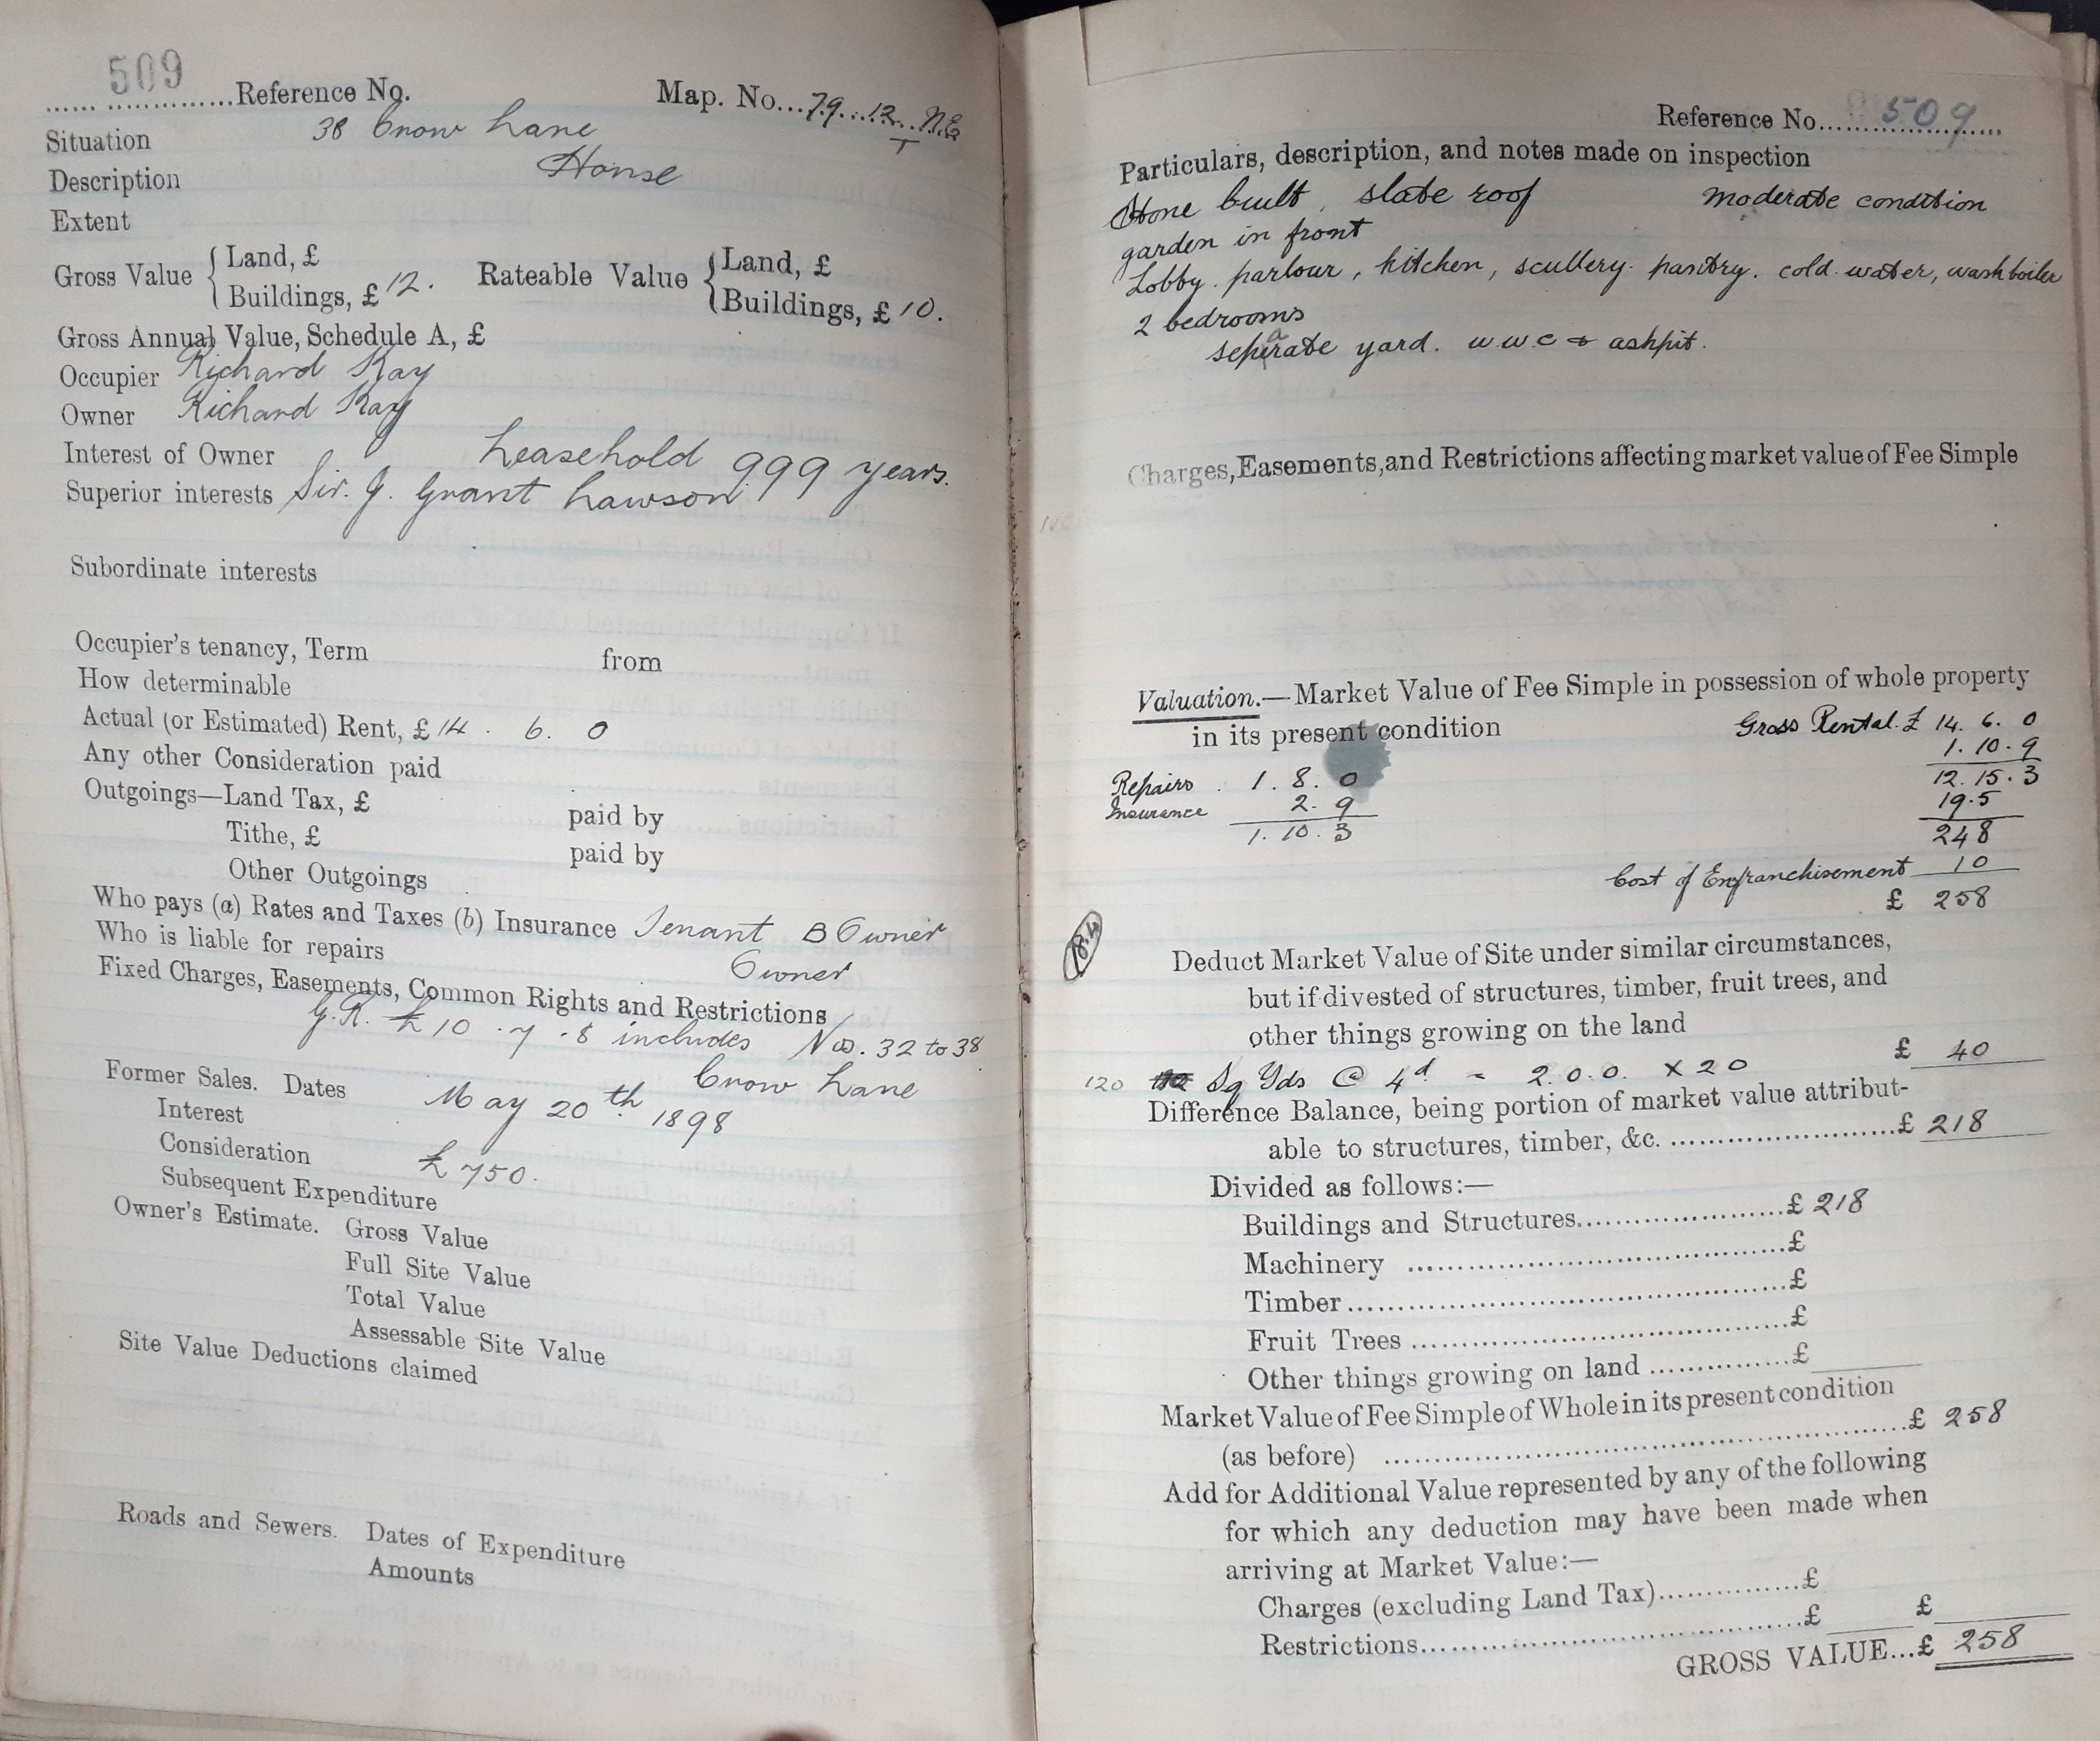 509
Reference No.
Map. No. 79. 12. N.E.
Situation 38 Crow Lane
Description House
Extent
Gross Value { Land, £
Buildings, £ 12.
Rateable Value { Land, £
Buildings, £ 10.
Gross Annual Value, Schedule A, £
Occupier Richard Kay
Owner Richard Kay
Interest of Owner Leasehold 999 years.
Superior interests Sir. J. Grant Lawson
Subordinate interests
Occupier's tenancy, Term from
How determinable
Actual (or Estimated) Rent, £ 14. 6. 0
Any other Consideration paid
Outgoings—Land Tax, £ paid by
Tithe, £ paid by
Other Outgoings
Who pays (a) Rates and Taxes (b) Insurance Tenant B Owner
Who is liable for repairs Owner
Fixed Charges, Easements, Common Rights and Restrictions
G.R. £10 . 7 . 8 includes Nos. 32 to 38
Crow Lane
Former Sales. Dates May 20th 1898
Interest
Consideration £750.
Subsequent Expenditure
Owner's Estimate. Gross Value
Full Site Value
Total Value
Assessable Site Value
Site Value Deductions claimed
Roads and Sewers. Dates of Expenditure
Amounts
Reference No. 509
Particulars, description, and notes made on inspection
Stone built, slate roof moderate condition
garden in front
Lobby. parlour, kitchen, scullery. pantry. cold water, wash boiler
2 bedrooms
separate yard. w.w.c & ashpit.
Charges, Easements, and Restrictions affecting market value of Fee Simple
Valuation.—Market Value of Fee Simple in possession of whole property
in its present condition Gross Rental. £ 14. 6. 0
1. 10. 9
Repairs 1. 8. 0 12. 15. 3
Insurance 2. 9 19.5
1. 10. 3 248
Cost of Enfranchisement 10
£ 258
18.4
Deduct Market Value of Site under similar circumstances,
but if divested of structures, timber, fruit trees, and
other things growing on the land
£ 40
120 Sq Yds @ 4d = 2. 0. 0. x 20
Difference Balance, being portion of market value attribut-
able to structures, timber, &c. £ 218
Divided as follows:—
Buildings and Structures £ 218
Machinery £
Timber £
Fruit Trees £
Other things growing on land £
Market Value of Fee Simple of Whole in its present condition
(as before) £ 258
Add for Additional Value represented by any of the following
for which any deduction may have been made when
arriving at Market Value:—
Charges (excluding Land Tax) £
Restrictions £ £
GROSS VALUE...£ 258